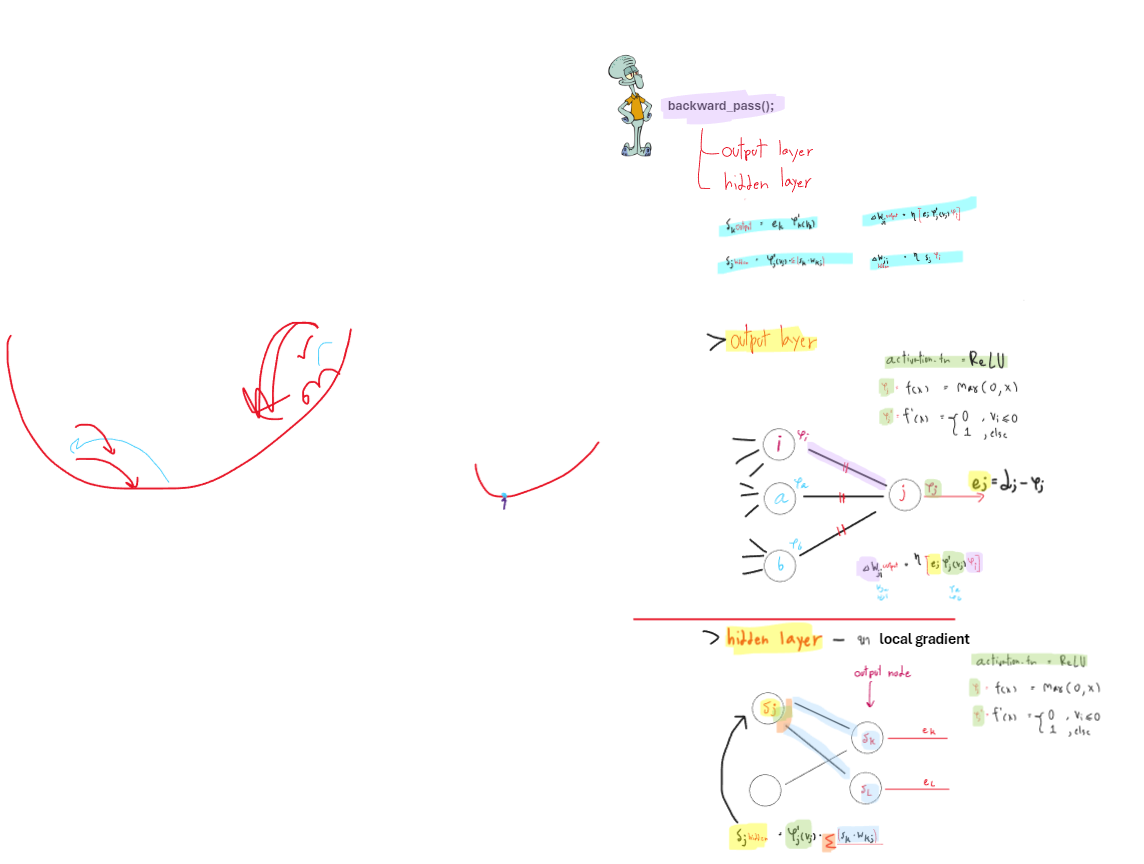 backward_pass();
output layer
hidden layer
δk output = ek φ'k(vk)
Δwji output = η [ej φ'j(vj) φi]
δj hidden = φ'j(vj) · Σ[δk · wkj]
Δwji hidden = η δj φi
> output layer
activation.fn = ReLU
φj = f(x) = max(0,x)
φ'j = f'(x) = { 0 , vi ≤ 0
1 , else
i φi
a φa
b φb
j φj
ej = dj - φj
Δwji output = η [ej φ'j(vj) φi]
> hidden layer – จาก local gradient
output node
activation.fn = ReLU
φj = f(x) = max(0,x)
φ'j = f'(x) = { 0 , vi ≤ 0
1 , else
δj
δk ek
δL eL
δj hidden = φ'j(vj) · Σ [δk · wkj]